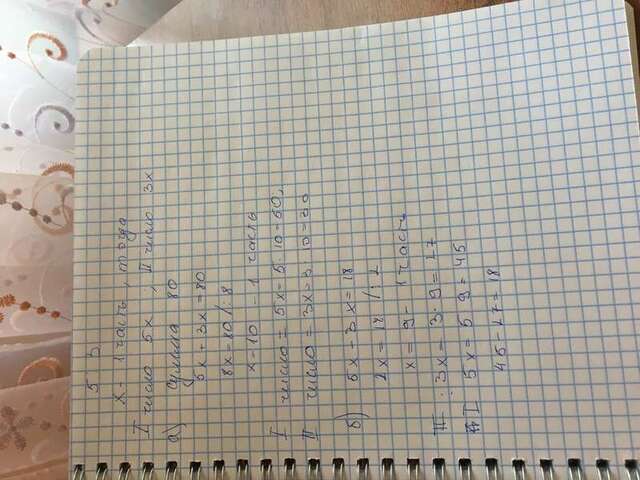 5 3
x - 1 часть, тогда
I число 5x ; II число 3x
а) Сумма 80
5x + 3x = 80
8x = 80 /: 8
x = 10 - 1 часть
I число = 5x = 5 · 10 = 50,
II число = 3x = 3 · 10 = 30
б) 5x - 3x = 18
2x = 18 /: 2
x = 9 - 1 часть
II : 3x = 3 · 9 = 27
I 5x = 5 9 = 45
45 - 27 = 18